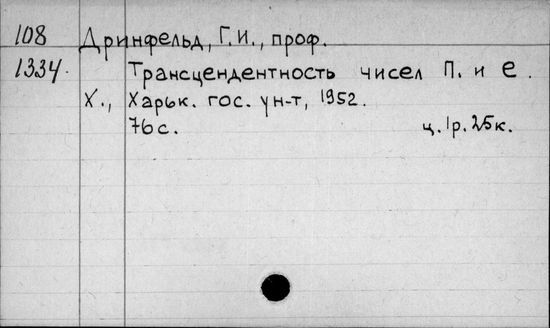 108 Дринфельд, Г.И., проф.
1334. Трансцендентность чисел П. и е.
Х., Харьк. гос. ун-т, 1952.
76с. ц. 1р. 25к.